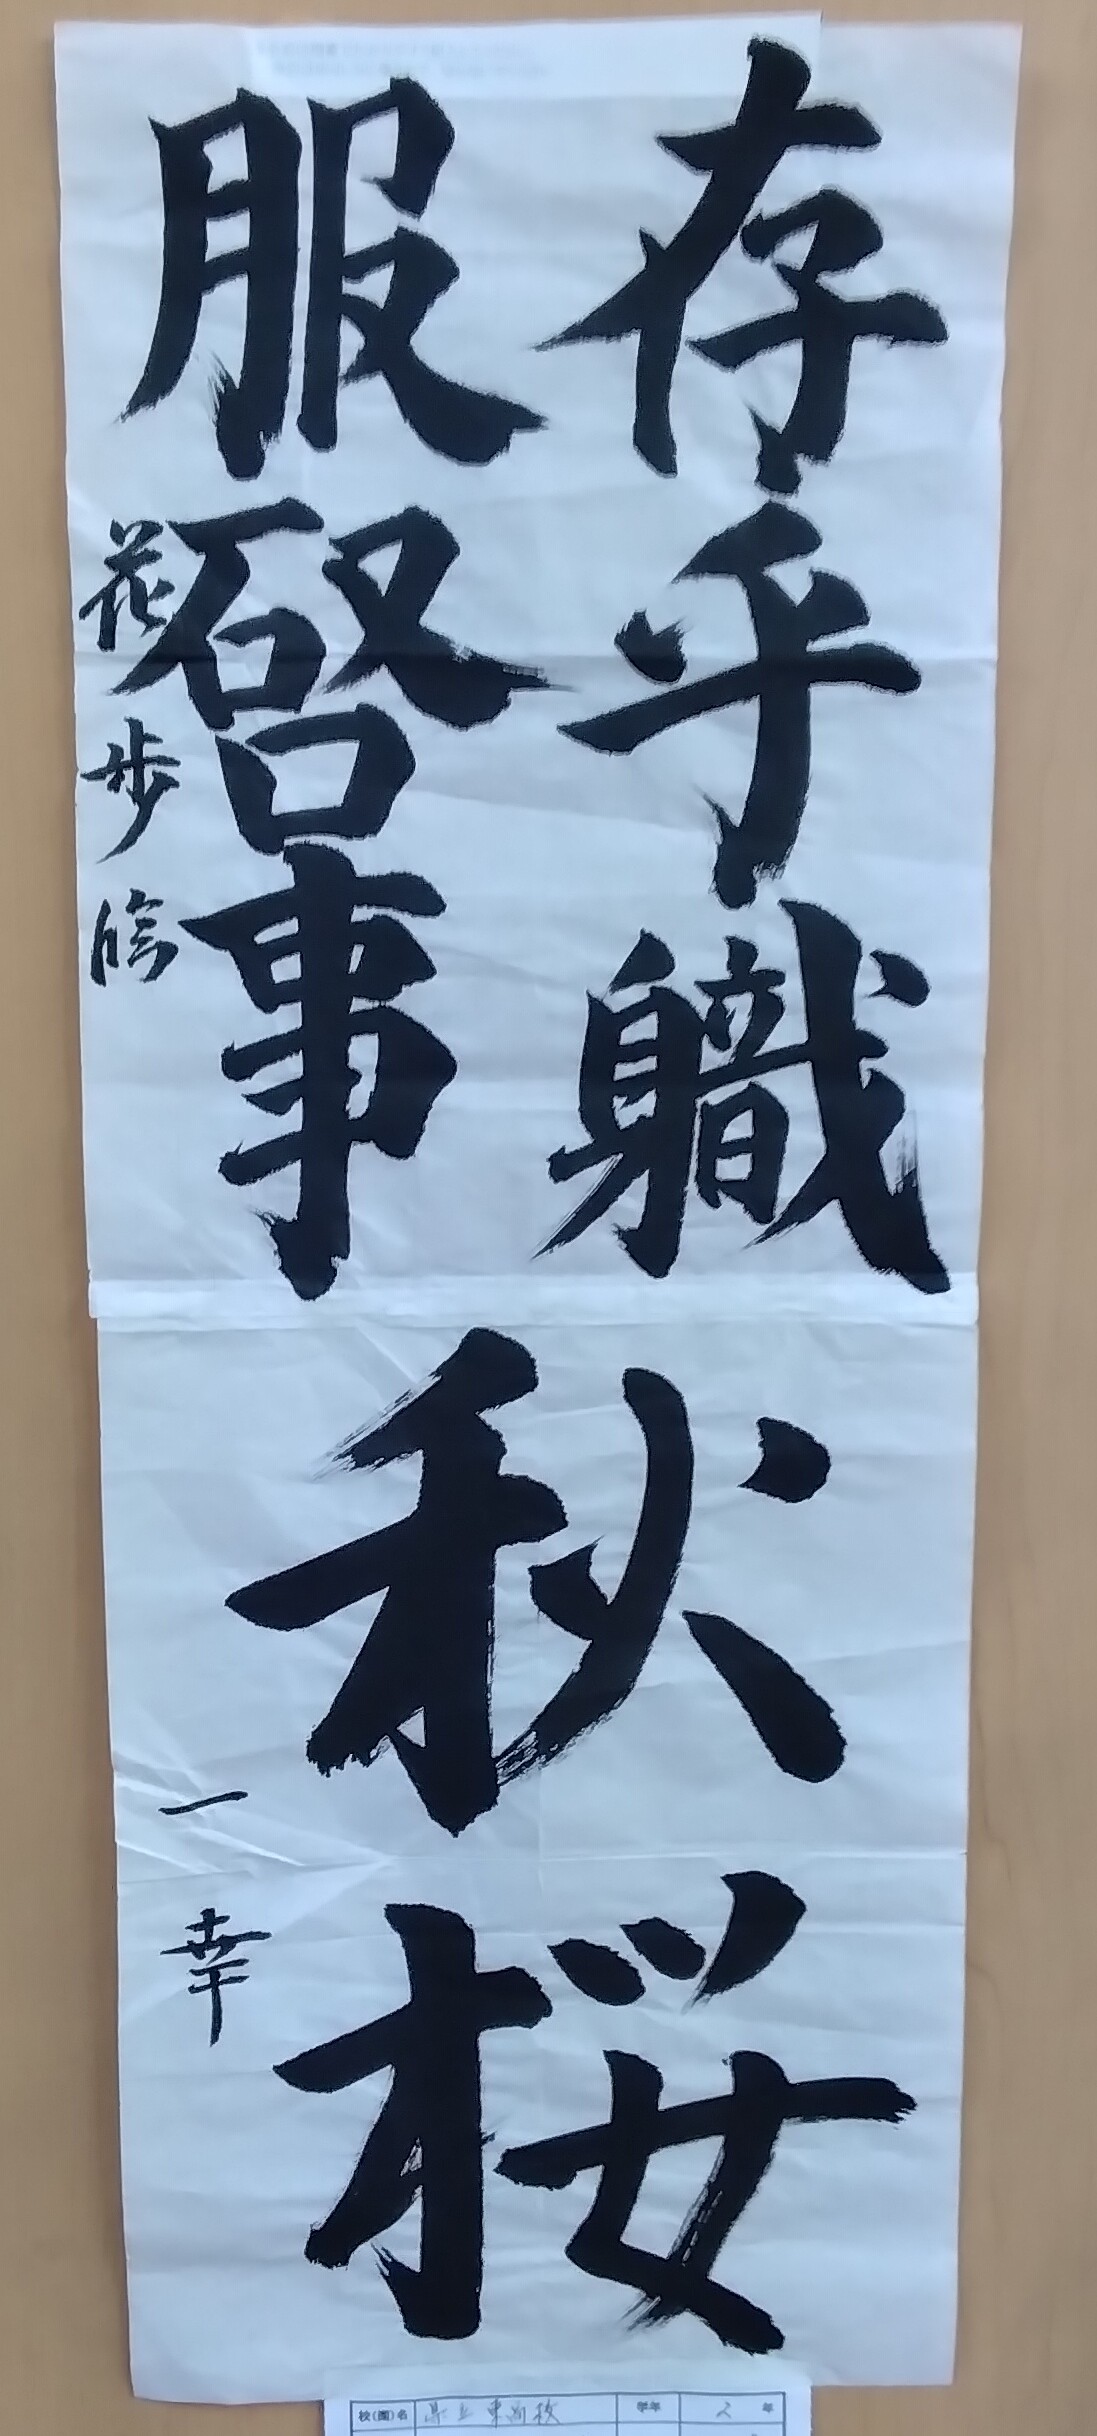 存乎軄
服啓事
花歩臨
秋桜
一幸
校(園)名 県立東高校 学年 2 年